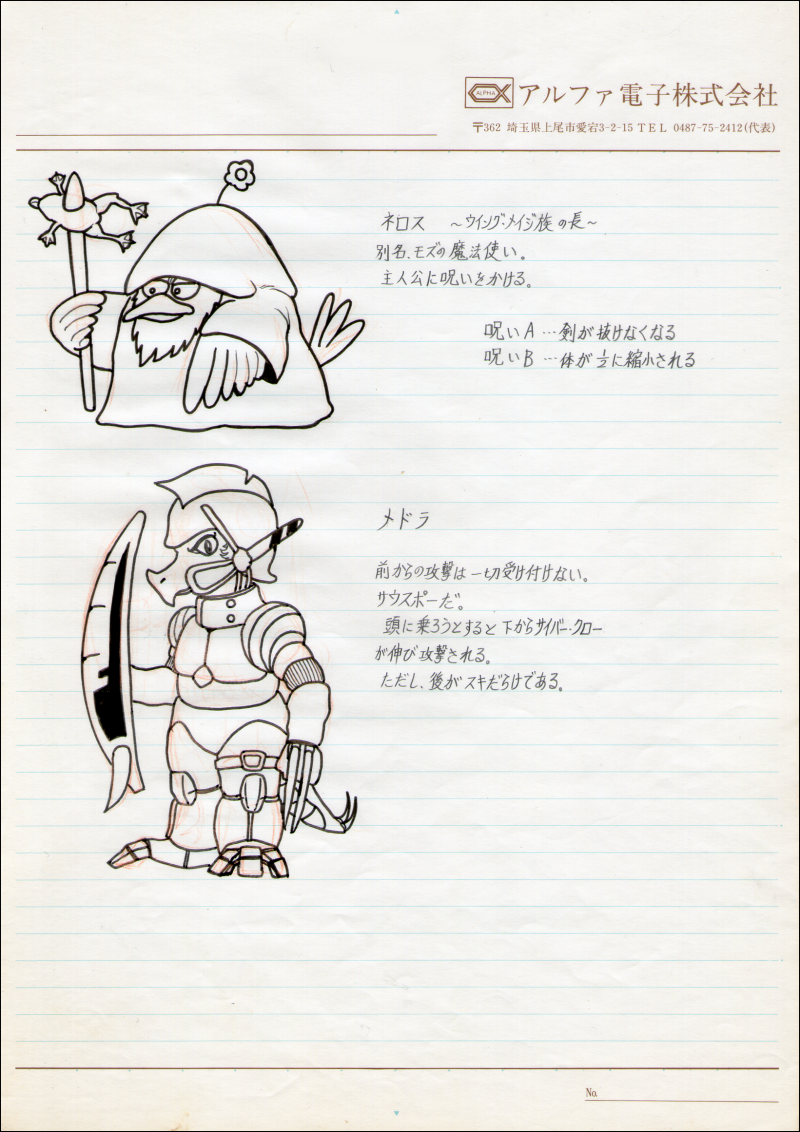 ALPHA
アルファ電子株式会社
〒362 埼玉県上尾市愛宕3-2-15 TEL 0487-75-2412(代表)
ネロス 〜ウイング・メイジ族の長〜
別名、モズの魔法使い。
主人公に呪いをかける。
呪いA…剣が抜けなくなる
呪いB…体が½に縮小される
メドラ
前からの攻撃は一切受け付けない。
サウスポーだ。
頭に乗ろうとすると下からサイバー・クロー
が伸び攻撃される。
ただし、後がスキだらけである。
No.